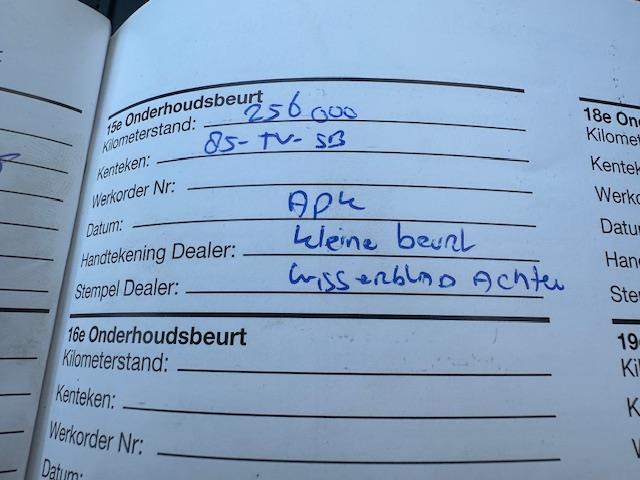 15e Onderhoudsbeurt
Kilometerstand: 256 000
Kenteken: 85-TV-SB
Werkorder Nr:
Datum: Apk
Handtekening Dealer: kleine beurt
Stempel Dealer: Wisserblad Achter
16e Onderhoudsbeurt
Kilometerstand:
Kenteken:
Werkorder Nr:
Datum:
18e On
Kilomet
Kentek
Werko
Datu
Han
Ste
19
Ki
K